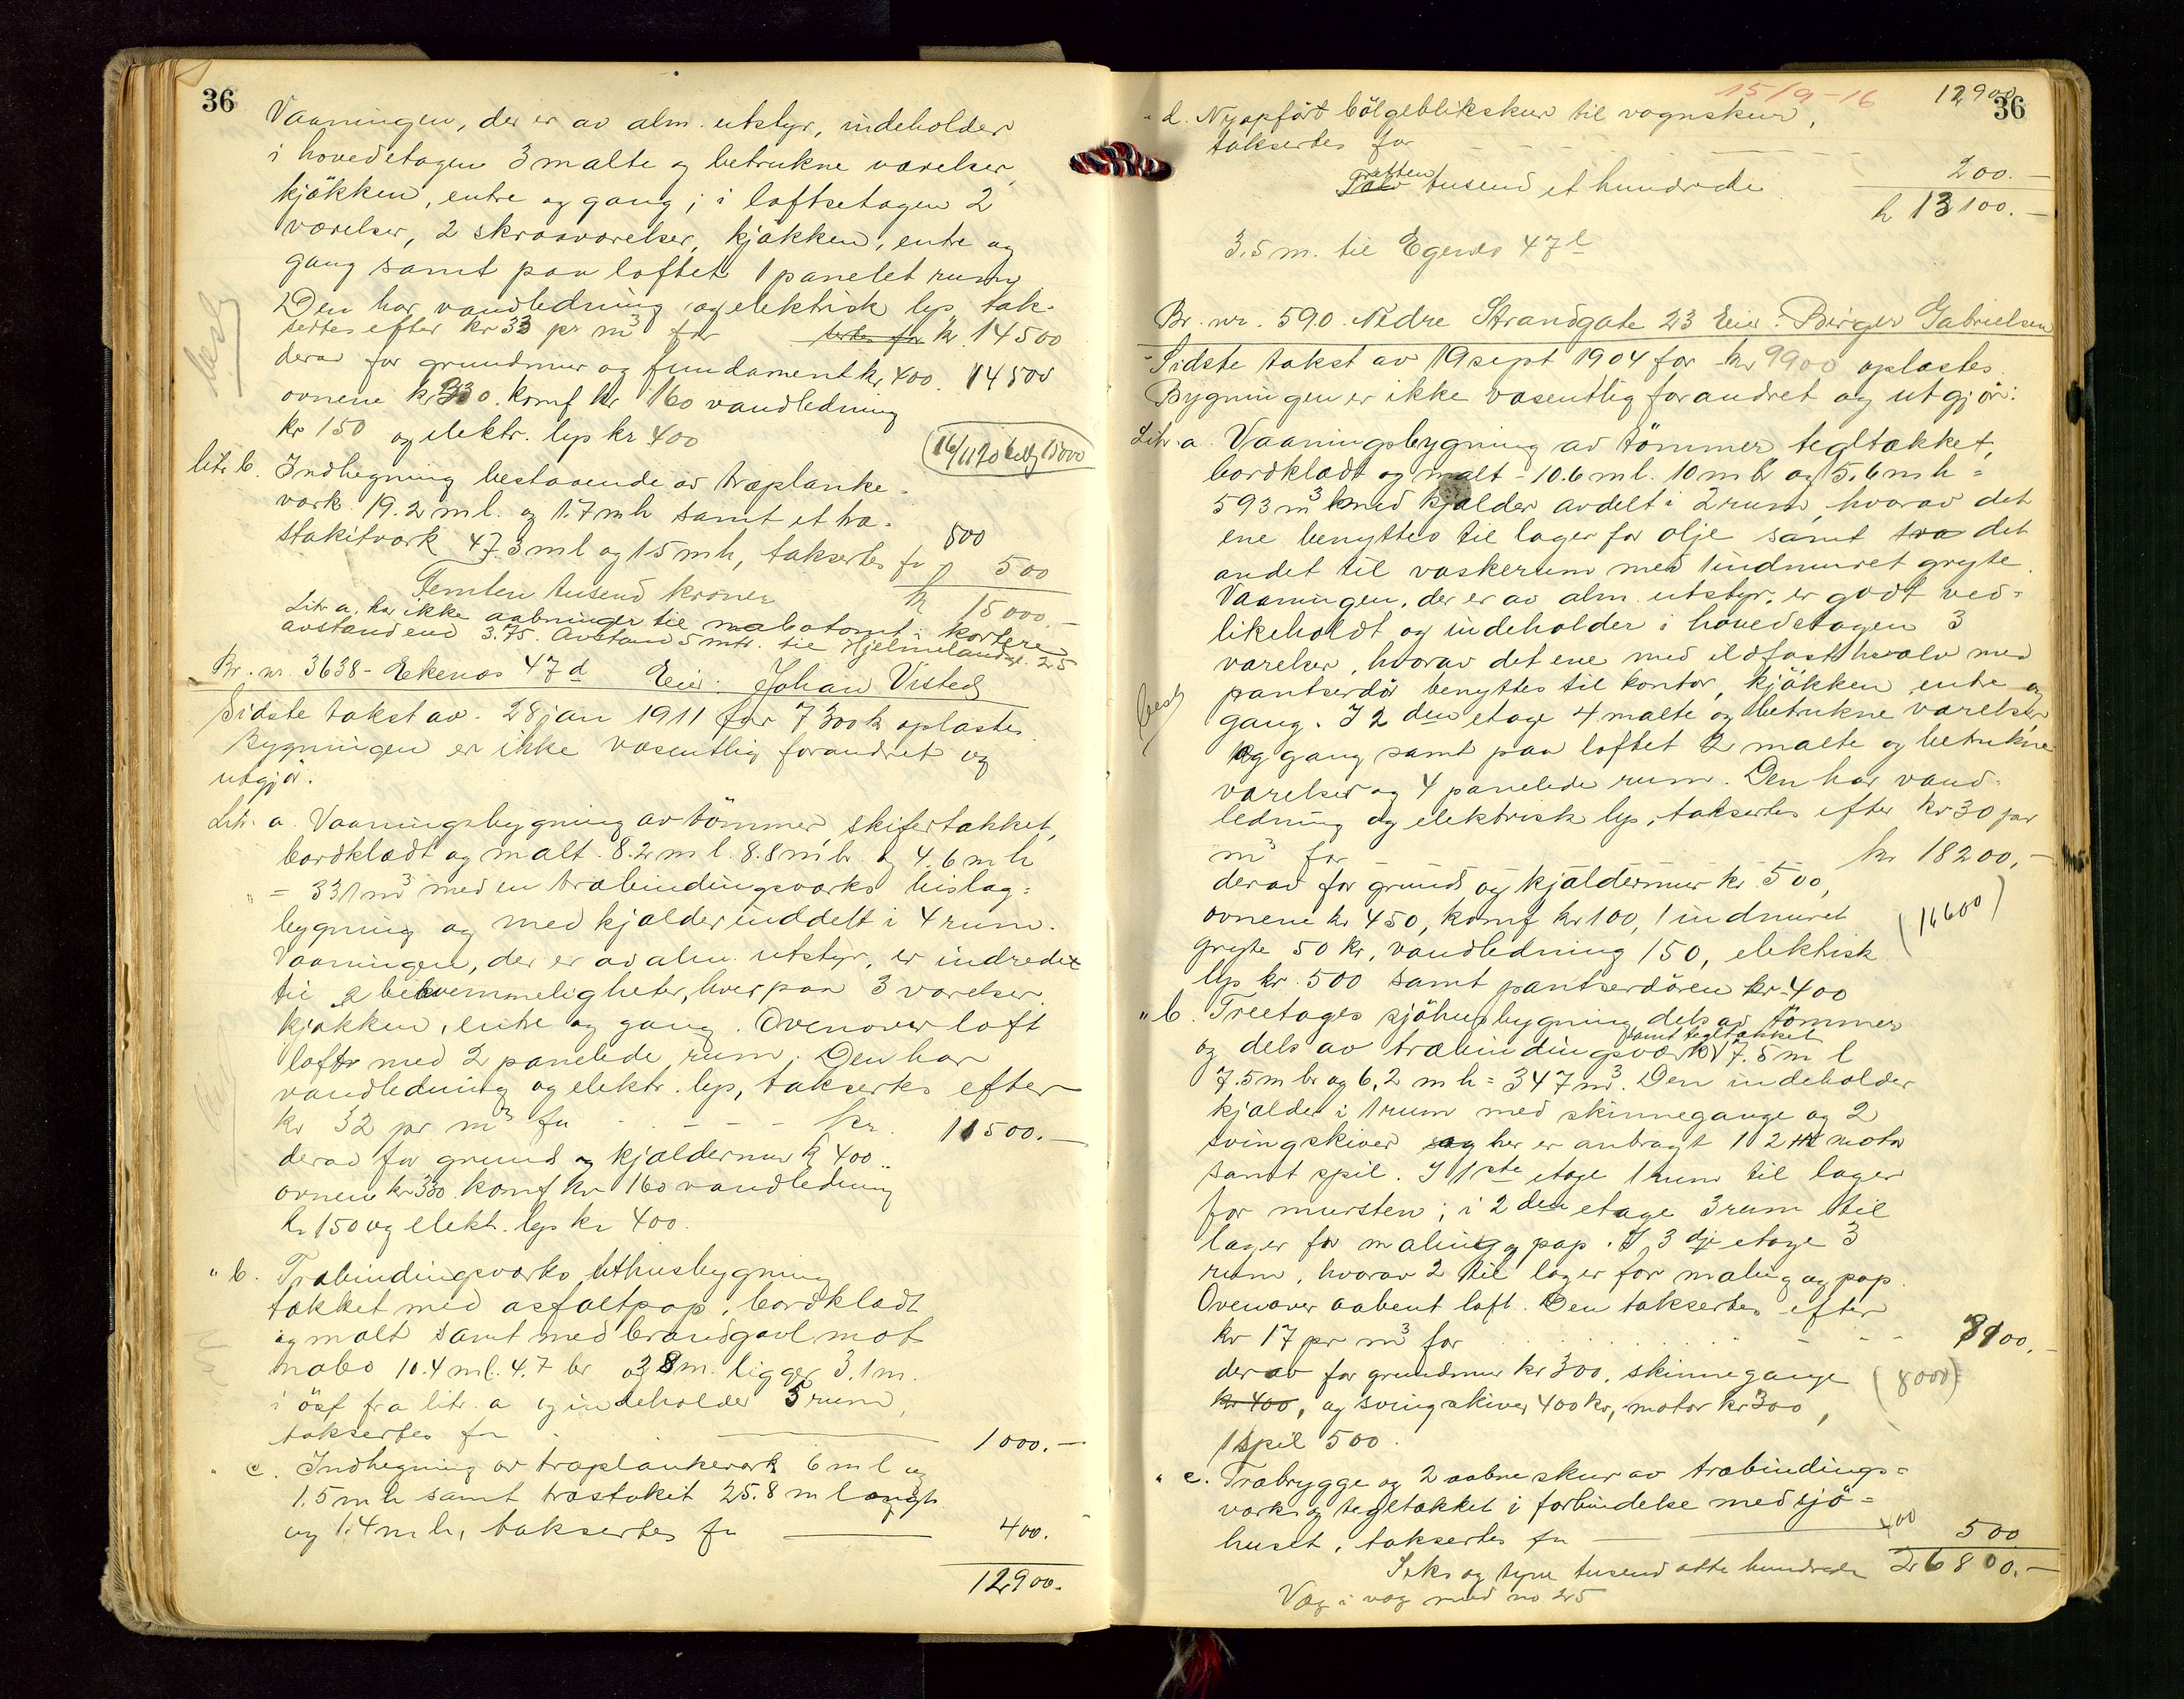 36
Vaaningen, der er av alm. utstyr, indeholder
i hovedetagen 3 malte og betrukne værelser,
kjøkken, entre og gang; i loftsetagen 2
værelser, 2 skraaværelser, kjøkken, entre og
gang samt paa loftet 1 panelet rum.
Den har vandledning og elektrisk lys, tak-
sertes efter kr 33 pr m³ for kr. 14500
derav for grundmur og fundament kr. 400. 14500
ovnene kr 330. komf kr 160 vandledning
kr 150 og elektr. lys kr 400
16/11 20 15000
litr b. Indhegning bestaaende av træplanke-
værk 19.2 m l. og 1.7 m h samt et træ-
stakitværk 47.3 m l og 1.5 m h, taksertes for 500
500
Femten tusend kroner kr 15000.-
Litr a. har ikke aabninger til nabotomt i kortere
avstand end 3.75. Avstand 5 mtr. til Hjelmelandsg. 25
Br. nr. 3638 - Ekenæs 47 d Eier: Johan Visted
Sidste takst av 28 jan 1911 for 7300 kr oplæstes.
Bygningen er ikke væsentlig forandret og
utgjør:
Litr. a. Vaaningsbygning av tømmer, skifertækket,
bordklædt og malt. 8.2 m l. 8.8 m br. og 4.6 m h
= 331 m³ med en træbindingsværks bislag-
bygning og med kjælder inddelt i 4 rum.
Vaaningen, der er av alm. utstyr, er indredet
til 2 bekvemmeligheter, hver paa 3 værelser,
kjøkken, entre og gang. Ovenover loft
loftr med 2 panelede rum. Den har
vandledning og elektr. lys, taksertes efter
kr 32 pr m³ for - - - - kr. 11500.-
derav for grund og kjældermur kr 400..
ovnene kr 330. komf kr 160 vandledning
kr 150 og elekt. lys kr 400.
" b. Træbindingsværks uthusbygning
tækket med asfaltpap, bordklædt
og malt samt med brandgavl mot
nabo 10.4 m l. 4.7 br og 2.8 m. ligger 3.1 m.
i øst fra litr. a og indeholder 5 rum,
taksertes for 1000.-
" c. Indhegning av træplankeverk 6 m l og
1.5 m h samt træstakit 25.8 m l
og 1.4 m h, taksertes for 400.-
12900.
15/9-16
12900
36
" d. Nyopført bølgeblikskur til vognskur,
taksertes for 200.-
Tretten
Tolv tusend et hundrede kr 13100.-
3.5 m. til Egenæs 47 l
Br. nr. 590. Nedre Strandgate 23 Eier: Birger Gabrielsen
Sidste takst av 19 sept 1904 for kr 9900 oplæstes.
Bygningen er ikke væsentlig forandret og utgjør:
Litr. a. Vaaningsbygning av tømmer, tegltækket,
bordklædt og malt - 10.6 m l. 10 m b og 5.6 m h =
593 m³ med kjælder avdelt i 2 rum, hvorav det
ene benyttes til lager for olje samt det
andet til vaskerum med 1 indmuret gryte.
Vaaningen, der er av alm. utstyr, er godt ved-
likeholdt og indeholder i hovedetagen 3
værelser, hvorav det ene med ildfast hvælv med
pantserdør benyttes til kontor, kjøkken, entre og
gang. I 2 den etage 4 malte og betrukne værelser
og gang samt paa loftet 2 malte og betrukne
værelser og 4 panelede rum. Den har vand-
ledning og elektrisk lys, taksertes efter kr 30 pr
m³ for kr 18200,-
derav for grund og kjældermur kr. 500,
ovnene kr 450, komf kr 100, 1 indmuret
(16600)
gryte 50 kr, vandledning 150, elektrisk
lys kr. 500 samt pantserdøren kr 400
" b. Treetages sjøhusbygning dels av tømmer
samt tegltækket
og dels av træbindingsværk 17.5 m l
7.5 m br og 6,2 m h = 347 m³. Den indeholder
kjælder i 1 rum med skinnegange og 2
svingskiver og her er anbragt 1 2 HK motor
samt spil. I 1ste etage 1 rum til lager
for mursten; i 2 den etage 3 rum til
lager for maling og pap. I 3 dje etage 3
rum, hvorav 2 til lager for maling og pap.
Ovenover aabent loft. Den taksertes efter
kr 17 pr m³ for 8100.-
derav for grundmur kr 300, skinnegange (8000)
kr 400, og svingskiver 400 kr, motor kr 300,
1 spil 500.
" c. Træbrygge og 2 aabne skur av træbindings-
værk og tegltækket i forbindelse med sjø-
400
huset, taksertes for 500
Seks og tyve tusend otte hundrede 26800.-
Væg i væg med no 25